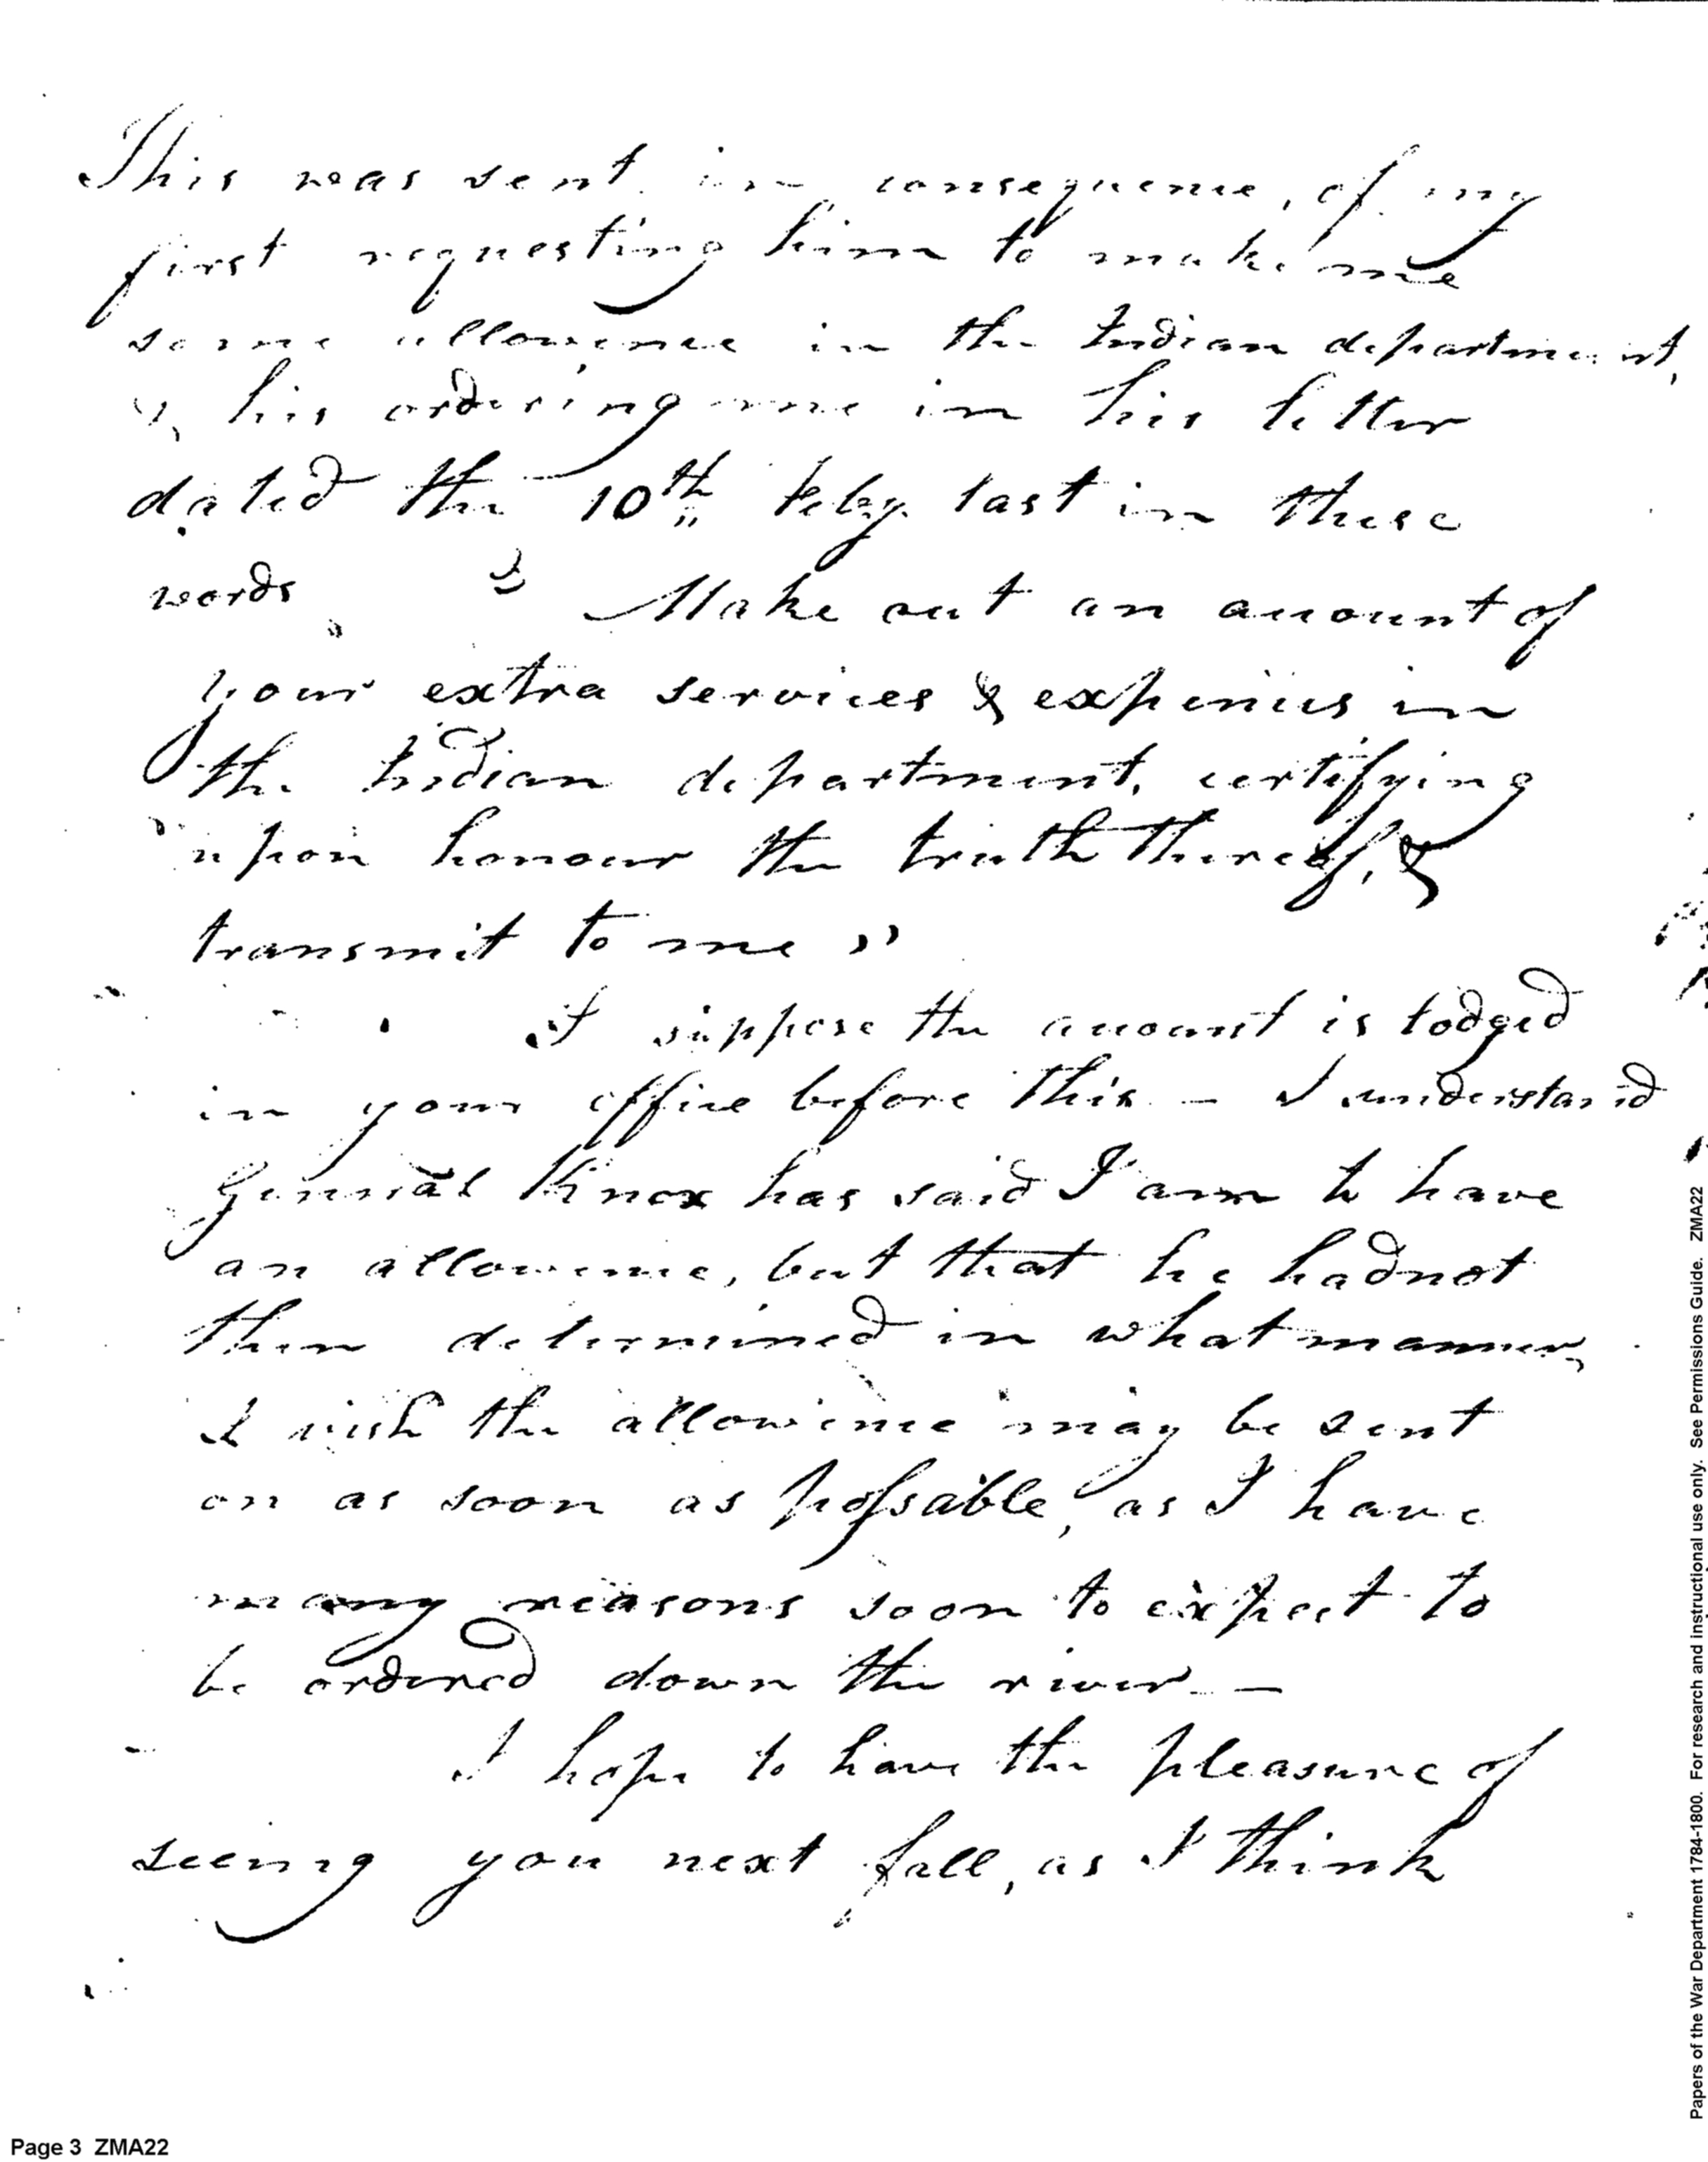 This was sent in consequence, of my
first requesting him to make me
some allowence in the Indian department,
& his ordering me in his letter
dated the 10th Feby. last in these
words " Make out an account of
your extra services & expences in
the Indian department, certifying
upon honour the truth thereof, &
transmit to me "
I suppose the account is lodged
in your office before this - I understand
General Knox has said I am to have
an allowence, but that he had not
then determined in what manner,
I wish the allowence may be sent
on as soon as possable, as I have
many reasons soon to expect to
be ordered down the river -
I hope to have the pleasure of
seeing you next fall, as I think
Page 3 ZMA22
Papers of the War Department 1784-1800. For research and instructional use only. See Permissions Guide. ZMA22